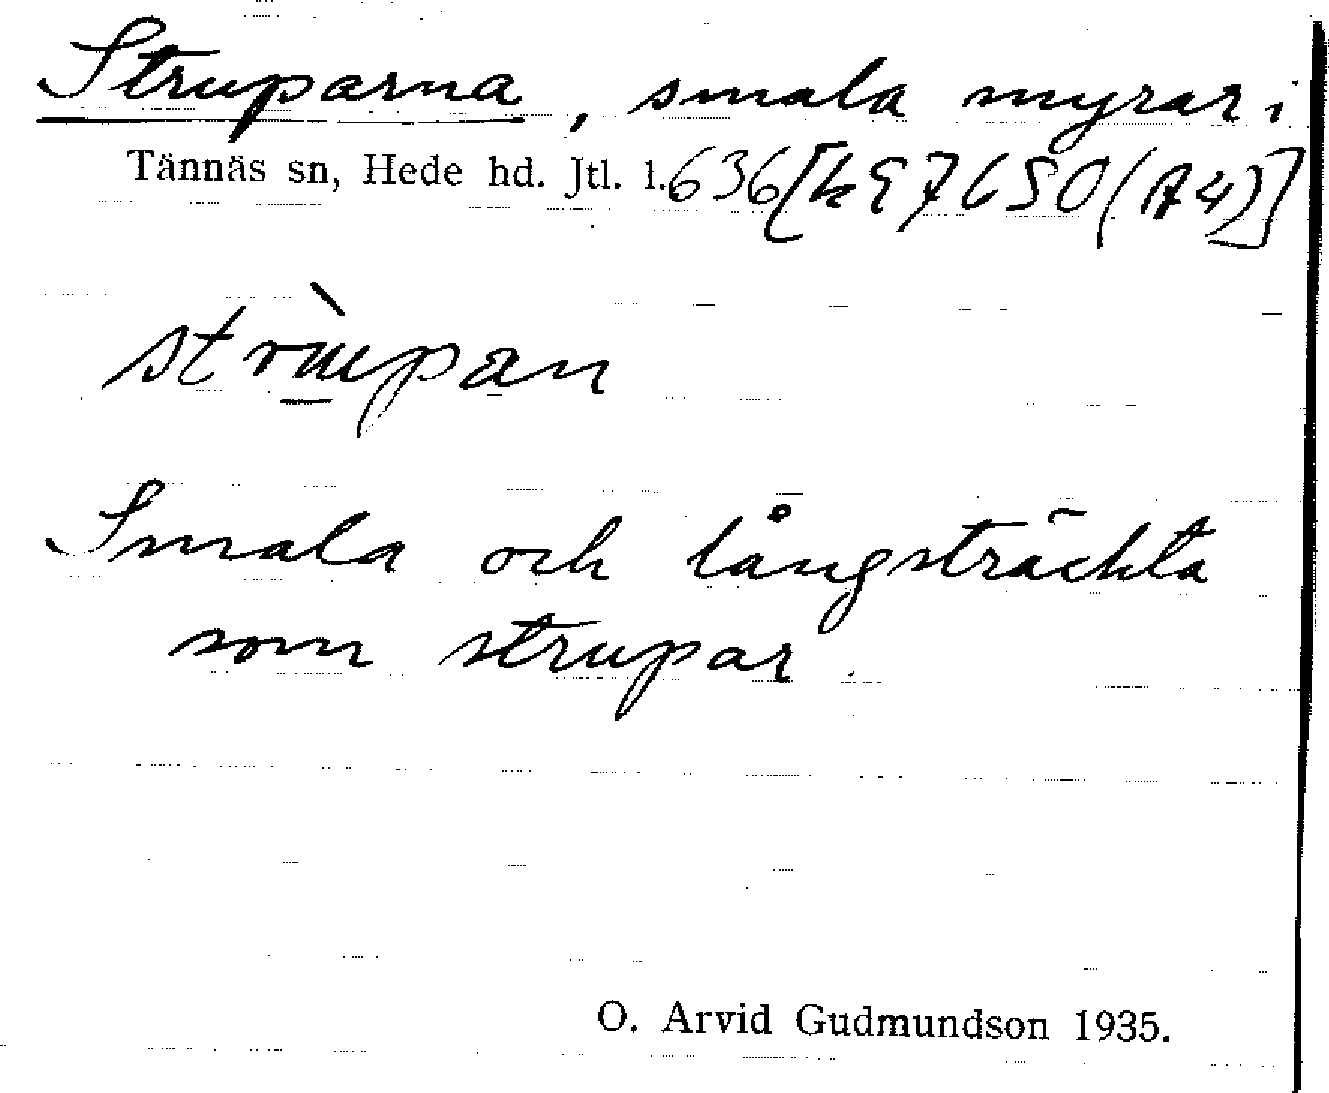 Struparna, smala myrar i
Tännäs sn, Hede hd. Jtl. l. 636 [k 97650 (A4)]
Smala och långsträckta
som strupar.
O. Arvid Gudmundson 1935.